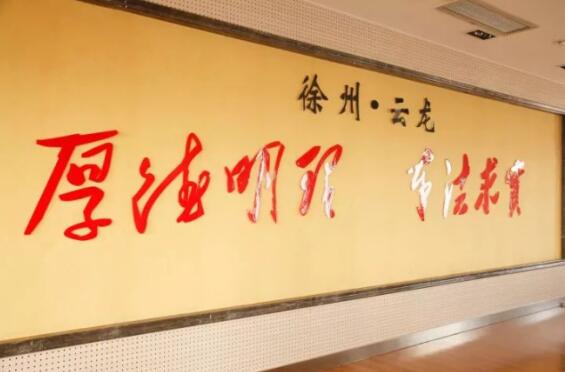 徐州·云龙
厚德明理 尊法求实